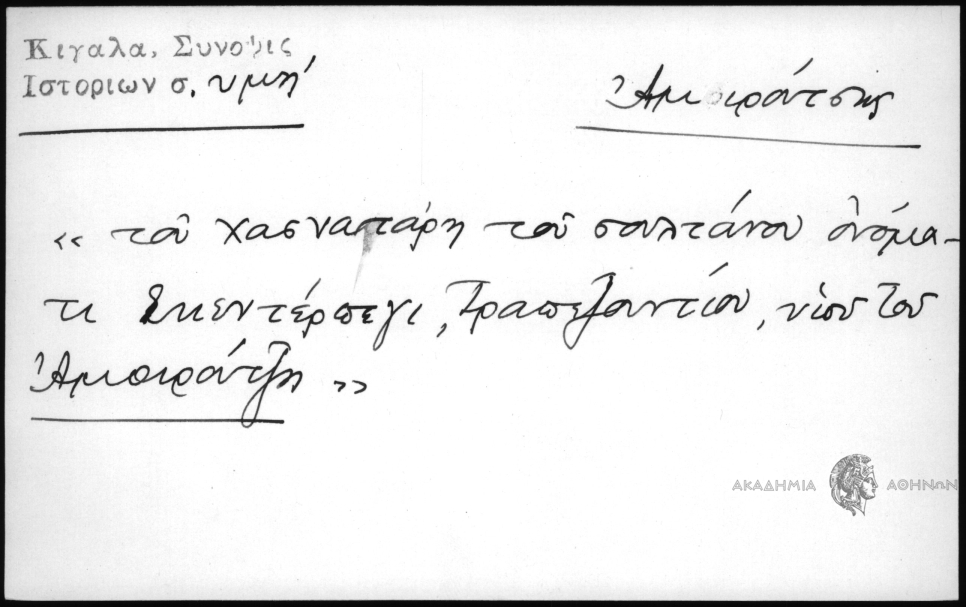 Κιγαλα, Συνοψις
Ιστοριων σ. υμη'
Ἀμοιράτσης
« τοῦ χασναπάρη τοῦ σουλτάνου ὀνόμα-
τι Σκεντέρπεγι, Τραπεζουντίου, υἱοῦ τοῦ
Ἀμοιράτζη »
ΑΚΑΔΗΜΙΑ ΑΘΗΝΩΝ